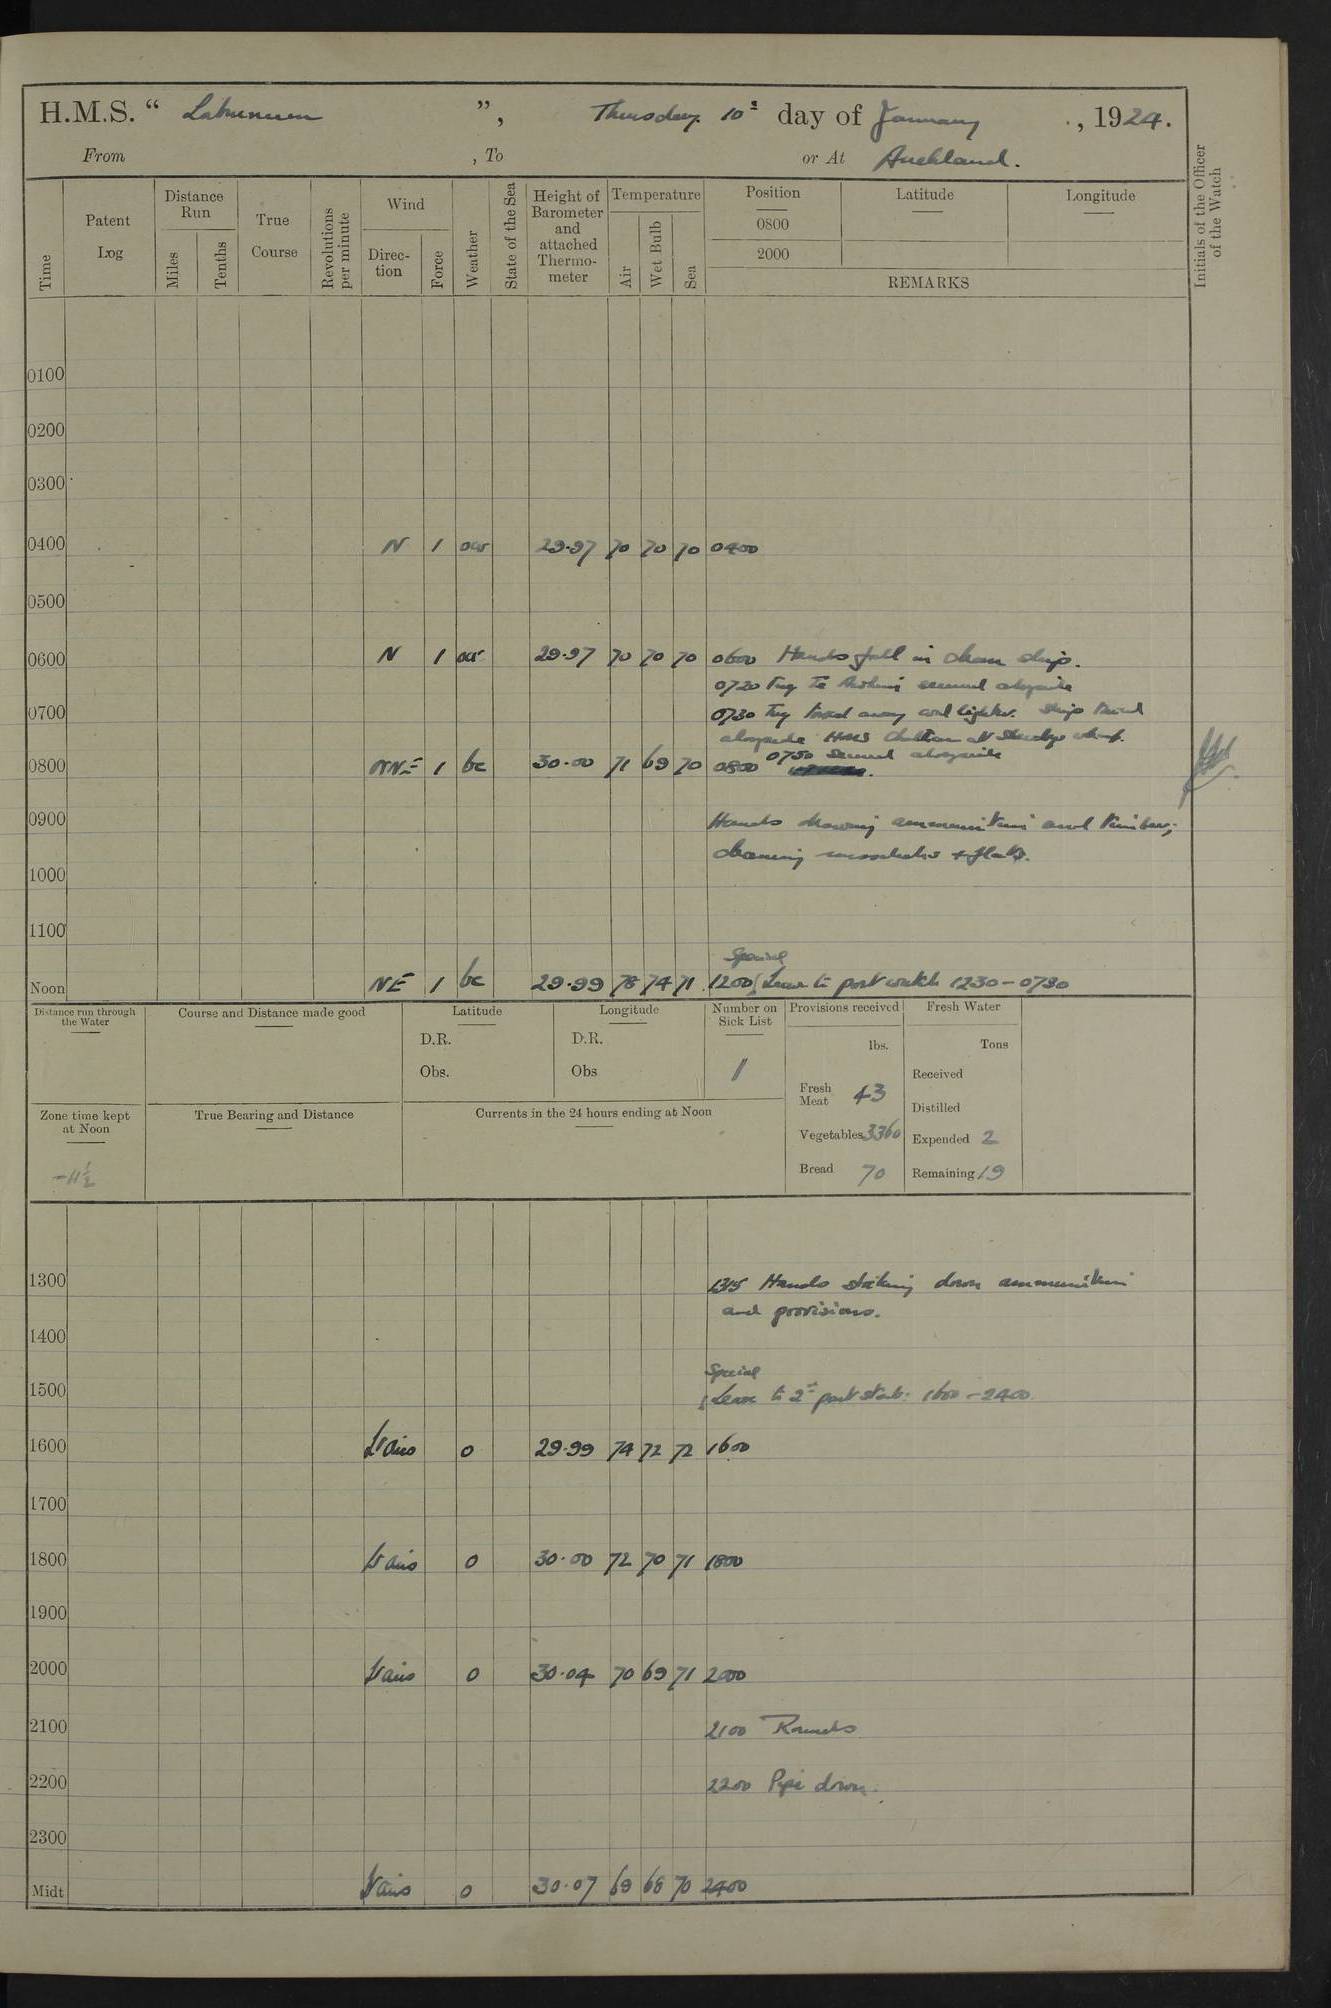 H.M.S. “ Laburnum ”, Thursday 10th day of January , 1924.
From , To or At Auckland.
Time
Patent Log
Distance Run
Miles
Tenths
True Course
Revolutions per minute
Wind
Direction
Force
Weather
State of the Sea
Height of Barometer and attached Thermometer
Temperature
Air
Wet Bulb
Sea
Position
0800
2000
Latitude
Longitude
REMARKS
Initials of the Officer of the Watch
0100
0200
0300
0400 N 1 29.97 70 70 70 0400
0500
0600 N 1 29.97 70 70 70 0600 Hands fall in clean ship.
0720 Tug secured alongside
0700 0730 Tug towed away coal lighter. Ship
alongside HMS wharf.
0750 Secured alongside
0800 NNE 1 bc 30.00 71 69 70 0800
0900 Hands drawing ammunition and
cleaning messdecks + flats.
1000
1100
Special
Noon NE 1 bc 29.99 78 74 71 1200 Leave to port watch 1230-0730
Distance run through the Water
Course and Distance made good
Latitude
D.R.
Obs.
Longitude
D.R.
Obs
Number on Sick List
1
Provisions received
lbs.
Fresh Meat 43
Vegetables 3360
Bread 70
Fresh Water
Tons
Received
Distilled
Expended 2
Remaining 19
Zone time kept at Noon
-11½
True Bearing and Distance
Currents in the 24 hours ending at Noon
1300 1315 Hands striking down ammunition
and provisions.
1400
Special
1500 Leave to 2nd part starb: 1600-2400
1600 Vairs 0 29.99 74 72 72 1600
1700
1800 Vairs 0 30.00 72 70 71 1800
1900
2000 Vairs 0 30.04 70 69 71 2000
2100 2100 Rounds
2200 2200 Pipe down.
2300
Midt Vairs 0 30.07 69 68 70 2400